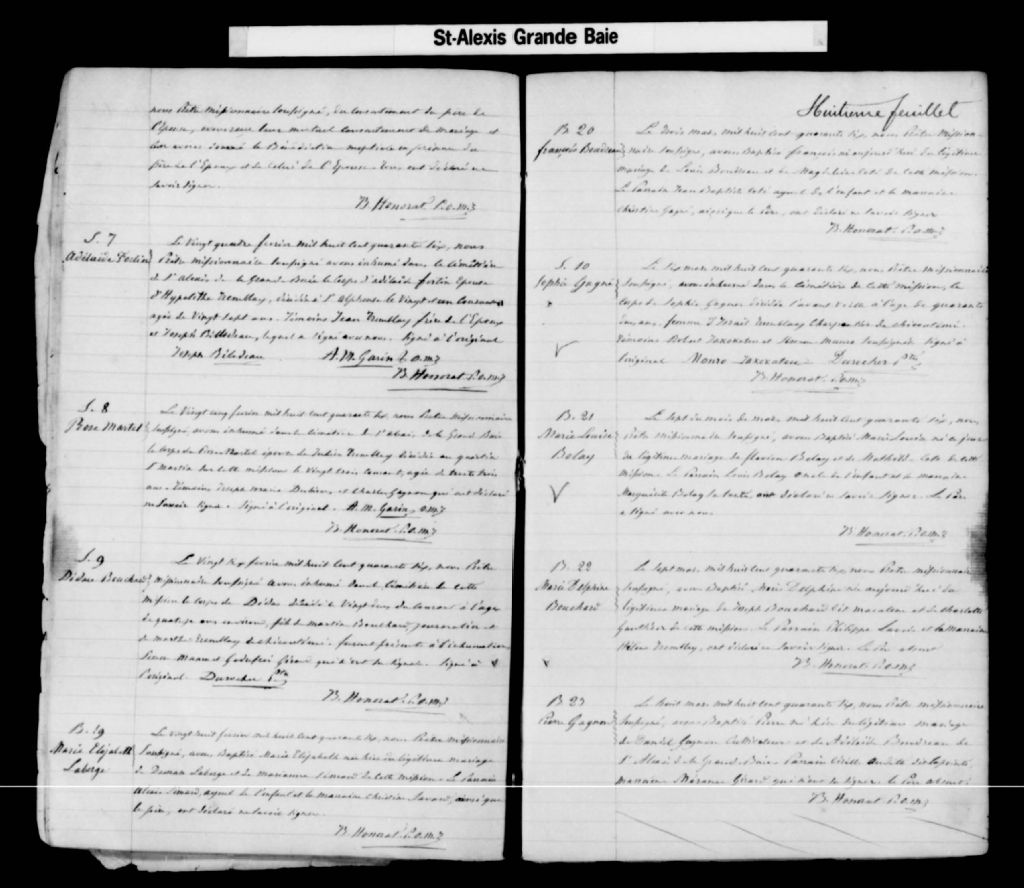 St-Alexis Grande Baie
nous Prêtre missionnaire soussigné, du consentement du père de
l'Epoux, avons reçu leur mutuel consentement de mariage et
leur avons donné la Bénédiction nuptiale en présence du
père de l'Epoux et de celui de l'Epouse. Tous ont déclaré ne
savoir signer.
B. Honorat P.O.M.I
S. 7
Adélaïde Fortin
Le vingt quatre fevrier mil huit cent quarante six, nous
Prêtre missionnaire soussigné avons inhumé dans le cimetière
de St Alexis de la Grand Baie le corps d'adélaïde fortin Epouse
d'Hypolithe Tremblay, décédée à St Alphonse le vingt et un courant
agée de vingt sept ans. Témoins Jean Tremblay frère de l'Epoux
et Joseph Bilodeau, lequel a signé avec nous. signé à l'original
Joseph Bilodeau A. M. Garin P.O.M.I
B. Honorat P.O.M.I
S. 8
Le Vingt cinq fevrier mil huit cent quarante six, nous Prêtre missionnaire
soussigné, avons inhumé dans le cimetière de St Alexis de la Grand Baie
le corps de Martel épouse de Tremblay décédée au quartier
St Martin sur cette mission le vingt trois courant, agée de trente trois
ans. Témoins Joseph marie et Charles Gagnon qui ont déclaré
ne savoir signer. Signé à l'original. A. M. Garin O.M.I
B. Honorat P.O.M.I
S. 9
Bouchard
Le Vingt six fevrier mil huit cent quarante six, nous Prêtre
missionnaire soussigné avons inhumé dans le cimetière de cette
mission le corps de décédé le vingt du courant à l'age
de quatorze ans environ, fils de martin Bouchard, journalier et
de marthe Tremblay de chicoutimi. furent présents à l'inhumation
et Godefroi Girard qui n'ont su signer. Signé à
l'original Durocher Ptre
B. Honorat P.O.M.I
B. 19
Marie Elizabeth
Laberge
Le vingt huit fevrier mil huit cent quarante six, nous Prêtre missionnaire
soussigné, avons Baptisé Marie Elizabeth née hier du légitime mariage
de Laberge et de marianne Simard de cette mission. Le Parrain
Simard, ayeul de l'enfant et la marraine Christine Savard, ainsi que
le père, ont déclaré ne savoir signer.
B. Honorat P.O.M.I
Huitieme feuillet
B. 20
françois Boudreau
Le trois mars, mil huit cent quarante six, nous Prêtre mission-
naire soussigné, avons Baptisé françois né aujourd'hui du légitime
mariage de Louis Boudreau et de Magdeleine Coté de cette mission.
Le Parrain Jean Baptiste Coté ayeul de l'enfant et la marraine
Christine Gagné, ainsi que le Père, ont déclaré ne savoir signer
B. Honorat P.O.M.I
S. 10
Sophie Gagné
Le six mars mil huit cent quarante six, nous Prêtre missionnaire
soussigné, avons inhumé dans le cimetière de cette mission, le
corps de Sophie Gagné décédée l'avant veille à l'age de quarante
ans, femme d'Israël Tremblay Charpentier de chicoutimi
témoins Robert et Munro soussignés signé à
l'original Monro Durocher Ptre
B. Honorat P.O.M.I
B. 21
Marie Louise
Bolay
Le sept du mois de mars mil huit cent quarante six, nous
Prêtre missionnaire soussigné, avons Baptisé Marie Louise née ce jour
du légitime mariage de flavien Bolay et de Mathilde Coté de cette
mission. Le Parrain Louis Bolay oncle de l'enfant et la marraine
Marguerite Bolay sa tante ont déclaré ne savoir signer. Le Père
a signé avec nous.
B. Honorat P.O.M.I
B. 22
Marie Delphine
Bouchard
Le sept mars mil huit cent quarante six, nous Prêtre missionnaire
soussigné, avons Baptisé Marie Delphine née aujourd'hui du
légitime mariage de Joseph Bouchard et de charlotte
Gauthier de cette mission. Le Parrain Philippe Savoie et la Marraine
Tremblay, ont déclaré ne savoir signer. Le Père absent
B. Honorat P.O.M.I
B. 23
Pierre Gagnon
Le huit mars, mil huit cent quarante six, nous Prêtre missionnaire
soussigné, avons Baptisé Pierre né hier du légitime mariage
de Daniel Gagnon Cultivateur et de Adélaïde Boudreau de
St Alexis de la Grand Baie. Parrain
marraine Girard qui n'ont su signer. le Père absent.
B. Honorat P.O.M.I